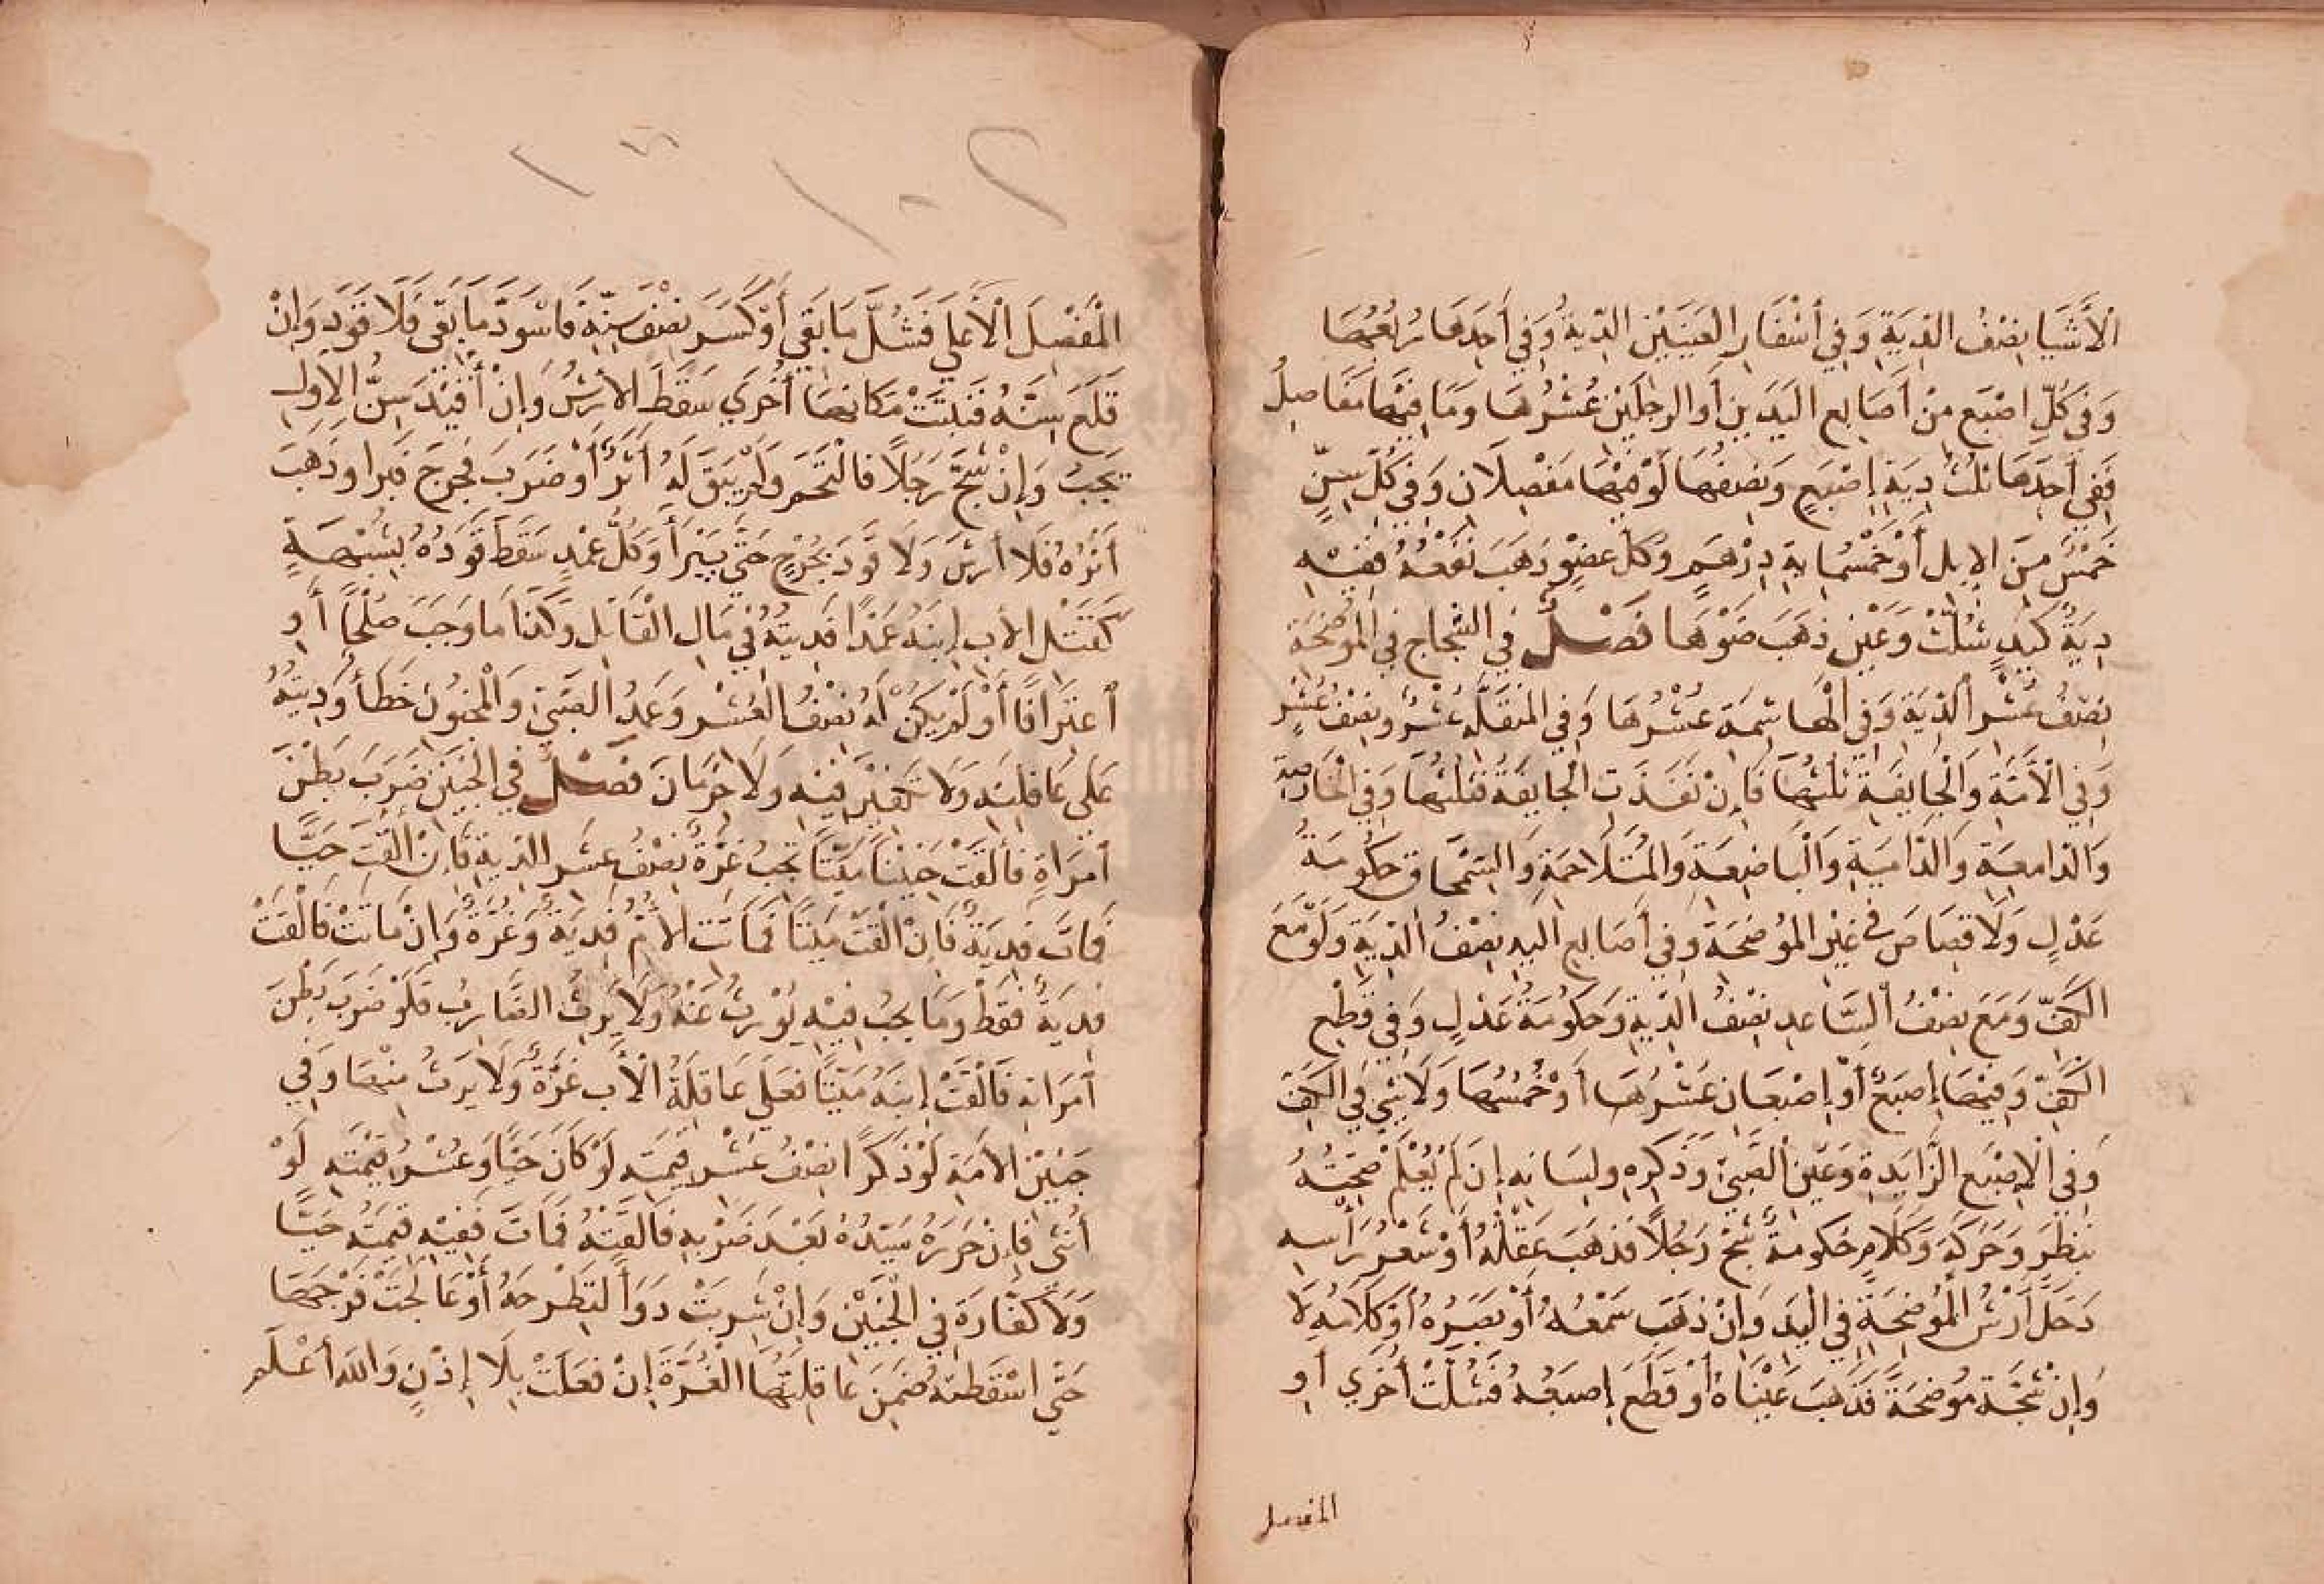 الْأَشْيَا نِصْفُ الدِّيَةِ وَفِي أَشْفَارِ الْعَيْنَيْنِ الدِّيَةُ وَفِي أَحَدِهَا رُبْعُهَا
وَفِي كُلِّ اصْبَعٍ مِنْ أَصَابِعِ الْيَدَيْنِ أَوِ الرِّجْلَيْنِ عُشْرُهَا وَمَا فِيْهَا مَفَاصِلُ
فَفِي أَحَدِهَا ثُلُثُ دِيَةِ إِصْبَعٍ وَنِصْفُهَا لَوْ فِيْهَا مَفْصِلَانِ وَفِي كُلِّ سِنٍّ
خَمْسٌ مِنَ الإِبِلِ أَوْ خَمْسُمِايَةِ دِرْهَمٍ وَكُلُّ عُضْوٍ ذَهَبَ نَفْعُهُ فَفِيْهِ
دِيَةٌ كَيَدٍ شُلَّتْ وَعَيْنٍ ذَهَبَ ضَوْهَا فَصْلٌ فِي الشِّجَاجِ فِي الْمُوضِحَةِ
نِصْفُ عُشْرِ الدِّيَةِ وَفِي الْهَاشِمَةِ عُشْرُهَا وَفِي الْمُنَقِّلَةِ عُشْرٌ وَنِصْفُ عُشْرٍ
وَفِي الْآمَّةِ وَالْجَايِفَةِ ثُلُثُهَا فَإِنْ نَفَذَتِ الْجَايِفَةُ فَثُلُثَهَا وَفِي الْحَارِصَةِ
وَالدَّامِعَةِ وَالدَّامِيَةِ وَالْبَاضِعَةِ وَالْمُتَلَاحِمَةِ وَالسِّمْحَاقِ حَكُومَةُ
عَدْلٍ وَلَا قِصَاصَ فِي غَيْرِ الْمُوضِحَةِ وَفِي أَصَابِعِ الْيَدِ نِصْفُ الدِّيَةِ وَلَوْ مَعَ
الْكَفِّ وَمَعَ نِصْفُ السَّاعِدِ نِصْفُ الدِّيَةِ وَحَكُومَةُ عَدْلٍ وَفِي قَطْعِ
الْكَفِّ وَفِيْهَا إِصْبَعٌ أَوْ إِصْبَعَانِ عُشْرُهَا أَوْ خُمُسُهَا وَلَا شَيْ فِي الْكَفِّ
وَفِي الْإِصْبَعِ الزَّايِدَةِ وَعَيْنِ الصَّبِيِّ وَذَكَرِهِ وَلِسَانِهِ إِنْ لَمْ يُعْلَمْ صِحَّتُهُ
بِنَظَرٍ وَحَرَكَةٍ وَكَلَامٍ حَكُومَةٌ شَجَّ رَجُلًا فَذَهَبَ عَقْلُهُ أَوْ شَعْرُ رَأْسِهِ
دَخَلَ أَرْشُ الْمُوضِحَةِ فِي الْيَدِ وَإِنْ ذَهَبَ سَمْعُهُ أَوْ بَصَرُهُ أَوْ كَلَامُهُ لَا
وَإِنْ شَجَّةَ مُوضِحَةً فَذَهَبَ عَيْنَاهُ أَوْ قَطَعَ إِصْبَعُهُ فَشُلَّتْ أُخْرَي أَوِ
المفصل
الْمَفْصِلَ الْأَعْلَي فَشُلَّ مَا بَقِيَ أَوْ كَسَرَ نِصْفَ سِنِّهِ فَاسْوَدَّ مَا بَقِيَ فَلَا قَوَدَ وَإِنْ
قَلَعَ سِنَّهُ فَنَبَتَتْ مَكَانَهَا أُخْرَي سَقَطَ الأَرْشُ وَإِنْ أُقِيْدَ سِنُّ الأَوَّلِ
يَجِبُ وَإِنْ شَجَّ رَجُلًا فَالْتَحَمَ وَلَمْ يَبْقَ لَهُ أَثَرٌ أَوْ ضَرَبَ فَجَرَحَ فَبَرا وَذَهَبَ
أَثَرُهُ فَلَا أَرْشَ وَلَا قَوَدَ بِجُرْحٍ حَتَّي يَبْرَأَ وَكُلُّ عَمْدٍ سَقَطَ قَوَدُهُ بِشُبْهَةٍ
كَقَتْلِ الأَبِ إِبْنَهُ عَمْدًا فَدِيَتُهُ فِي مَالِ الْقَاتِلِ وَكَذَا مَا وَجَبَ صُلْحًا أَوِ
اعْتِرَافًا أَوْ لَمْ يَكُنْ لَهُ نِصْفُ الْعُشْرِ وَعَمْدُ الصَّبِيِّ وَالْمَجْنُونِ خَطَأٌ وَدِيَتُهُ
عَلَي عَاقِلَتِهِ وَلَا تَكْفِيْرَ فِيْهِ وَلَا حِرْمَانَ فَصْلٌ فِي الْجَنِيْنِ ضَرَبَ بَطْنَ
امْرَأَةٍ فَأَلْقَتْ جَنِيْنًا مَيْتًا تَجِبُ غُرَّةٌ نِصْفُ عُشْرِ الدِّيَةِ فَإِنْ أَلْقَتْ حَيًّا
فَمَاتَ فَدِيَةٌ فَإِنْ أَلْقَتْ مَيْتًا فَمَاتَتِ الْأُمُّ فَدِيَةٌ وَغُرَّةٌ وَإِنْ مَاتَتْ فَأَلْقَتْ
فَدِيَةٌ فَقَطْ وَمَا يَجِبُ فِيْهِ يُوْرَثُ عَنْهُ وَلَا يَرِثُ الضَّارِبُ فَلَوْ ضَرَبَ بَطْنَ
امْرَاتِهِ فَأَلْقَتْ إِبْنَهُ مَيْتًا فَعَلَي عَاقِلَةِ الْأَبِ غُرَّةٌ وَلَا يَرِثُ مِنْهَا وَفِي
جَنِيْنِ الْأَمَةِ لَوْ ذَكَرًا نِصْفُ عُشْرِ قِيْمَتِهِ لَوْ كَانَ حَيًّا وَعُشْرُ قِيْمَتِهِ لَوْ
أُنْثَي فَإِنْ حَرَرَهُ سَيِّدُهُ بَعْدَ ضَرْبِهِ فَأَلْقَتْهُ فَمَاتَ فَفِيْهِ قِيْمَتُهُ حَيًّا
وَلَا كَفَّارَةَ فِي الْجَنِيْنِ وَإِنْ شَرِبَتْ دَوَاً لِتَطْرَحَهُ أَوْ عَالَجَتْ فَرْجَهَا
حَتَّي اسْقَطَتْهُ ضَمِنَ عَاقِلَتُهَا الْغُرَّةَ إِنْ فَعَلَتْ بِلَا إِذْنٍ وَاللَّهُ أَعْلَم